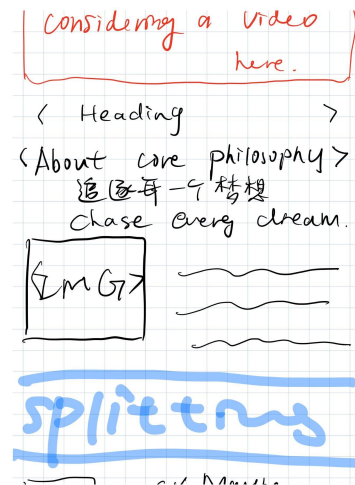 considering a video
here.
< Heading >
<About core philosophy>
追逐每一个梦想
chase every dream.
<IMG>
splitting